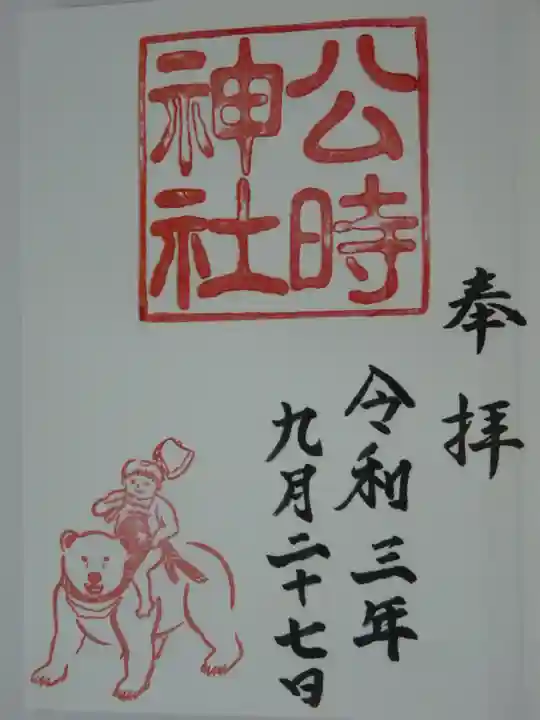 公時
神社
奉拝
令和三年
九月二十七日